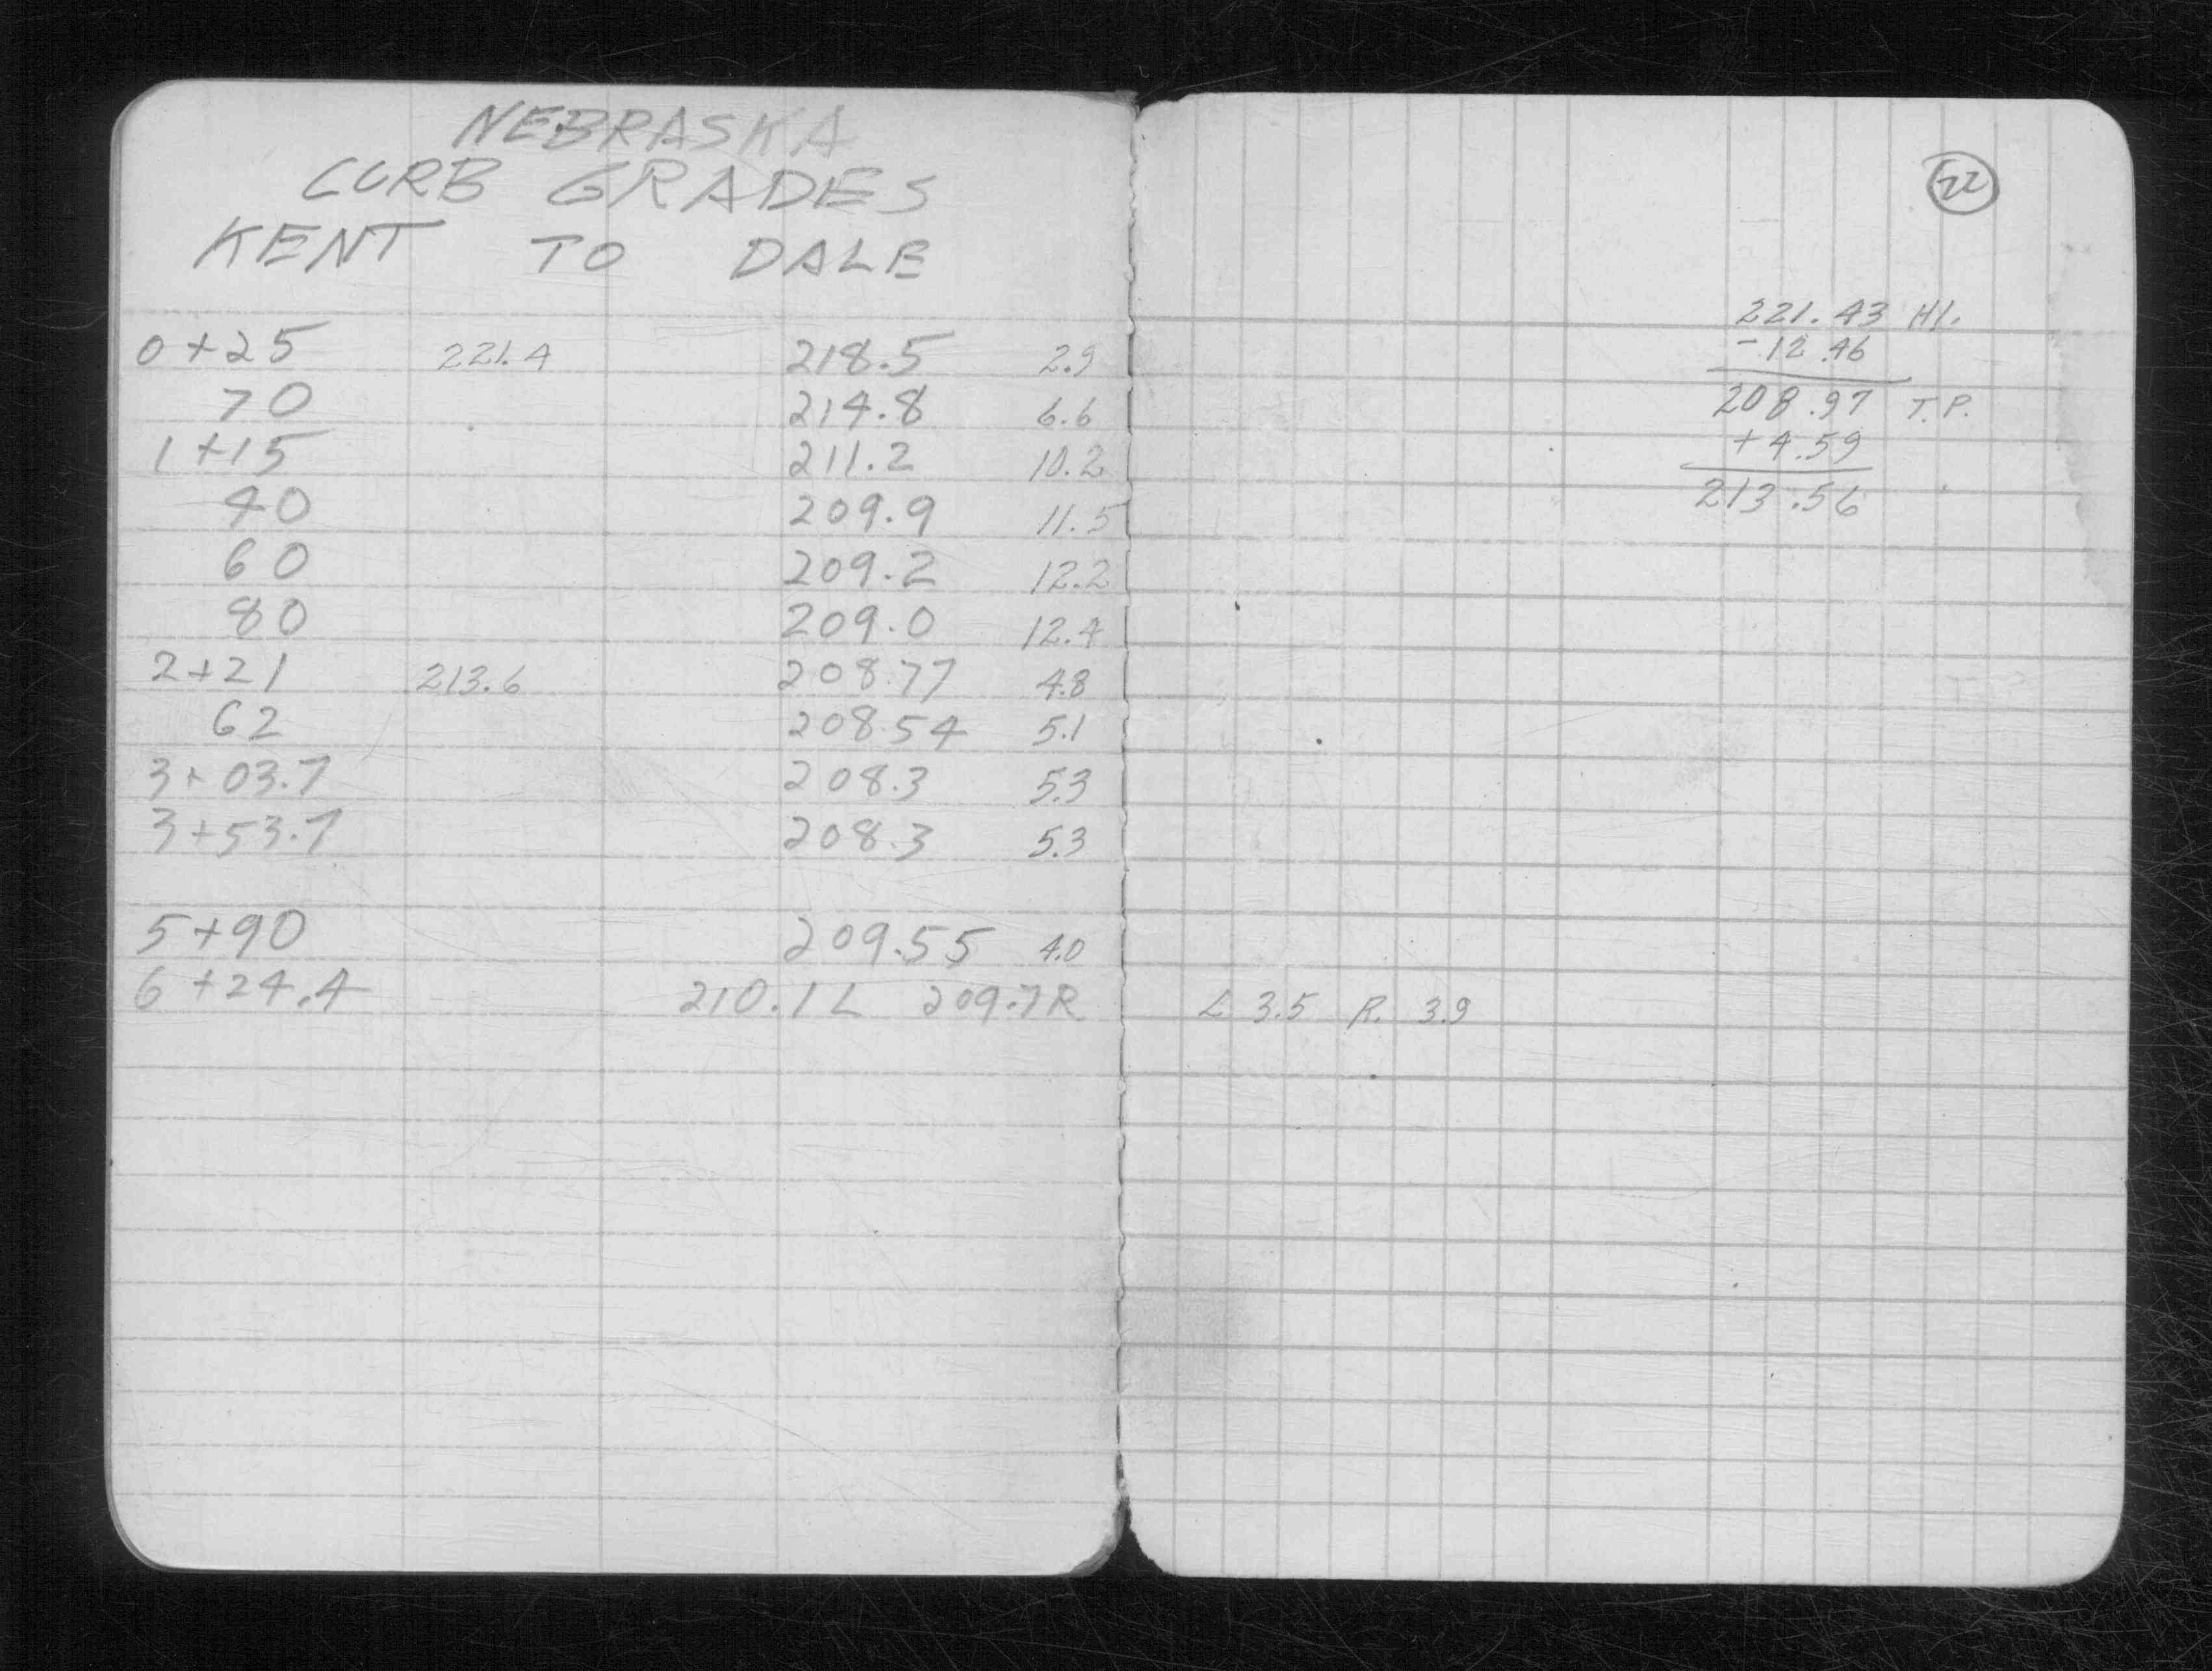 NEBRASKA
CURB GRADES
KENT TO DALE
0+25 221.4 218.5 2.9
70 214.8 6.6
1+15 211.2 10.2
40 209.9 11.5
60 209.2 12.2
80 209.0 12.4
2+21 213.6 208.77 4.8
62 208.54 5.1
3+03.7 208.3 5.3
3+53.7 208.3 5.3
5+90 209.55 4.0
6+24.4 210.1 L 209.7 R L 3.5 R. 3.9
22
221.43 HI.
-12.46
208.97 T.P.
+4.59
213.56